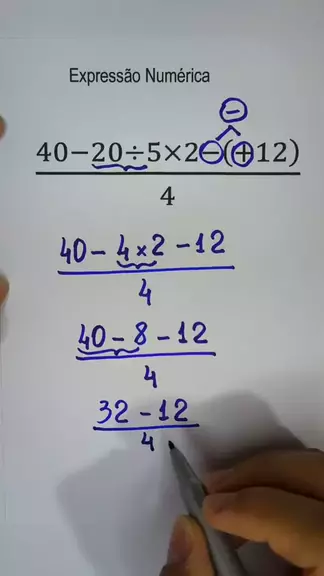 Expressão Numérica
−
40−20÷5×2−(+12)
4
40 − 4 × 2 − 12
4
40 − 8 − 12
4
32 − 12
4